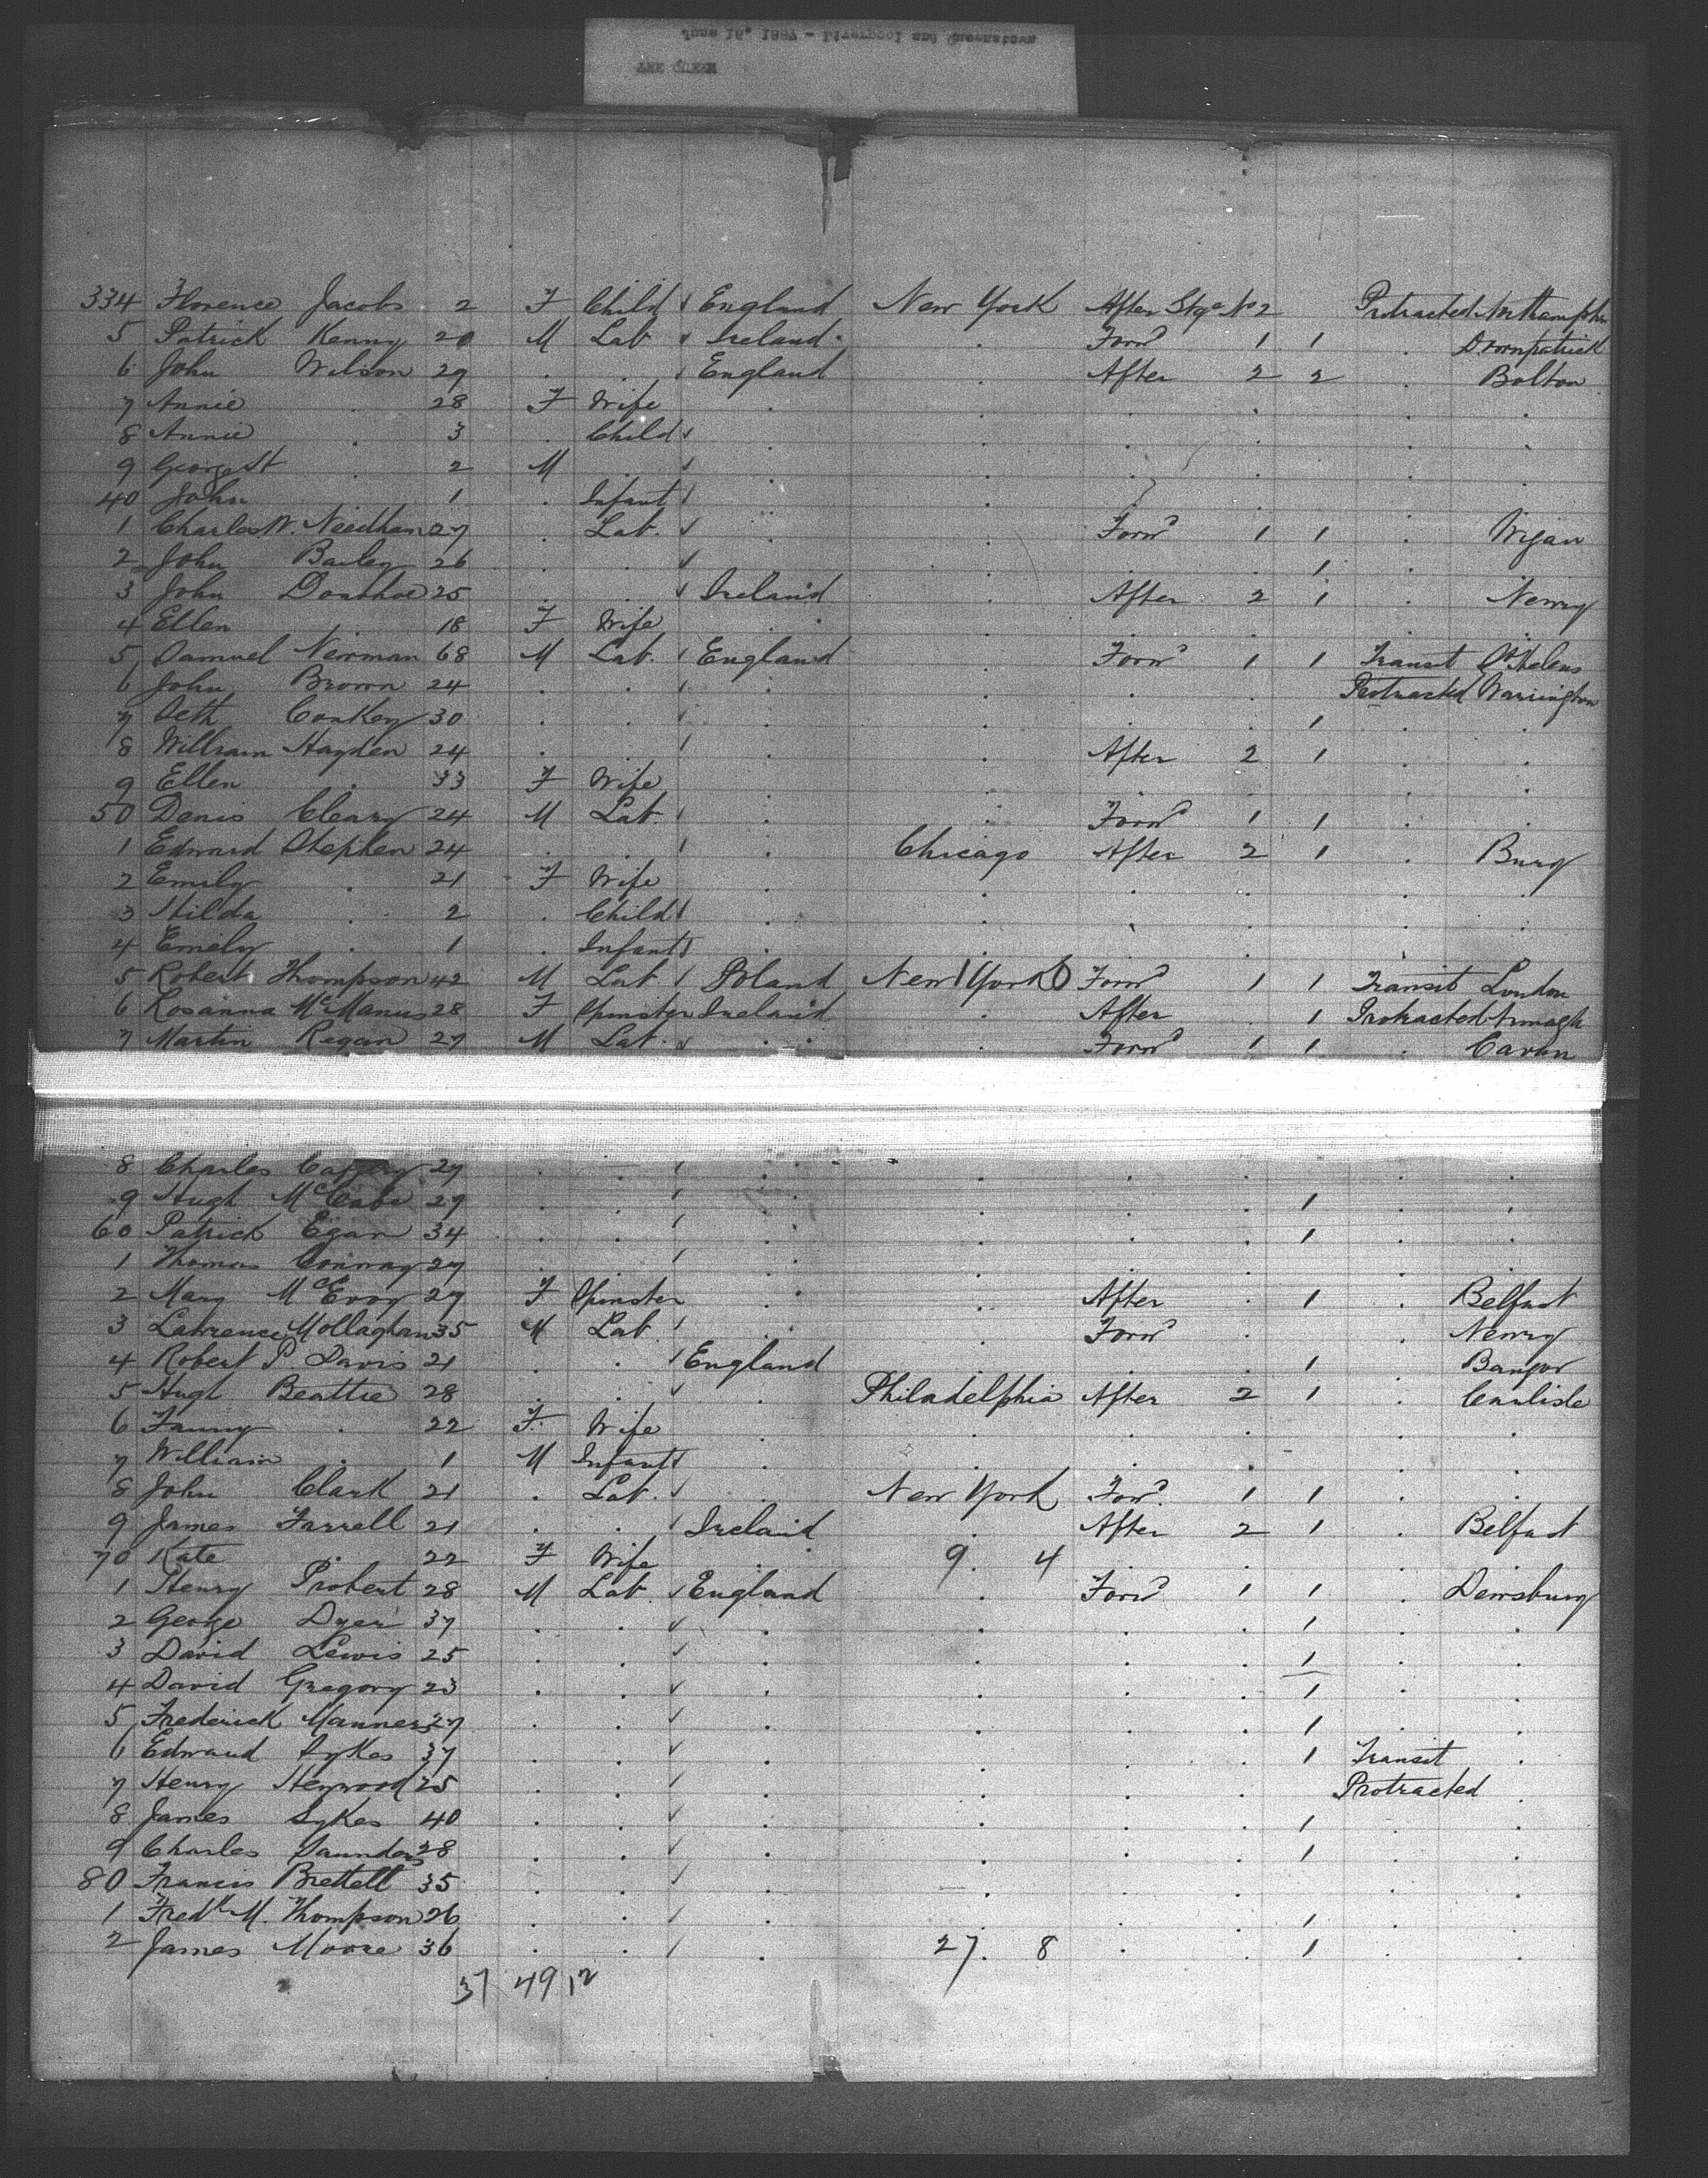 June 16, 1887 - Liverpool and Queenstown
THE QUEEN
334 Florence Jacobs 2 F Child England New York After Stge No 2 Protracted Northampton
5 Patrick Kenny 20 M Lab Ireland . Forwd 1 1 . Downpatrick
6 John Wilson 29 . . England . After 2 2 . Bolton
7 Annie . 28 F Wife . . . . . . .
8 Annie . 3 . Child . . . . . . .
9 George H . 2 M . . . . . . . .
40 John . 1 . Infant . . . . . .
1 Charles W. Needham 27 . Lab. . . Forwd 1 1 . Wigan
2 John Bailey 26 . . . . . . 1 . .
3 John Donohoe 25 . . Ireland . After 2 1 . Newry
4 Ellen . 18 F Wife . . . . . . .
5 Samuel Newman 68 M Lab. England . Forwd 1 1 Transit St Helens
6 John Brown 24 . . . . . . Protracted Warrington
7 Seth Conkey 30 . . . . . . 1 . .
8 William Hayden 24 . . . . After 2 1 . .
9 Ellen . 33 F Wife . . . . . .
50 Denis Cleary 24 M Lab. . . Forwd 1 1 . .
1 Edward Stephen 24 . . . Chicago After 2 1 . Bury
2 Emily . 21 F Wife . . . . . .
3 Hilda . 2 . Child . . . . . .
4 Emily . 1 . Infant . . . . . .
5 Robert Thompson 42 M Lab. Poland New York Forwd 1 1 Transit London
6 Rosanna McManus 28 F Spinster Ireland . After . 1 Protracted Armagh
7 Martin Regan 27 M Lab. . . Forwd 1 1 . Cavan
8 Charles Caffery 27 . . . . . . . .
9 Hugh McCabe 27 . . . . . . 1 . .
60 Patrick Egan 34 . . . . . . 1 . .
1 Thomas Conway 27 . . . . . . . .
2 Mary McEvoy 27 F Spinster . . After . 1 . Belfast
3 Lawrence Mollaghan 35 M Lab. . . Forwd . . Newry
4 Robert P. Davis 21 . . England . . . 1 . Bangor
5 Hugh Beattie 28 . . . Philadelphia After 2 1 . Carlisle
6 Fanny . 22 F. Wife . . . . . .
7 William . 1 M Infant . . . . . .
8 John Clark 21 . Lab. . New York Forwd. 1 1 . .
9 James Farrell 21 . . Ireland . After 2 1 . Belfast
70 Kate . 22 F Wife . 9. 4 . . . .
1 Henry Probert 28 M Lab. England . Forwd 1 1 . Dewsbury
2 George Dyer 37 . . . . . . 1 . .
3 David Lewis 25 . . . . . . 1 . .
4 David Gregory 23 . . . . . . 1 . .
5 Frederick Manners 27 . . . . . . 1 . .
6 Edward Sykes 37 . . . . . . 1 Transit .
7 Henry Heywood 25 . . . . . . Protracted .
8 James Sykes 40 . . . . . . 1 . .
9 Charles Saunders 28 . . . . . . 1 . .
80 Francis Brettell 35 . . . . . . . .
1 Fredk M. Thompson 26 . . . . . . 1 . .
2 James Moore 36 . . . 27. 8 . . 1 . .
37 49 12